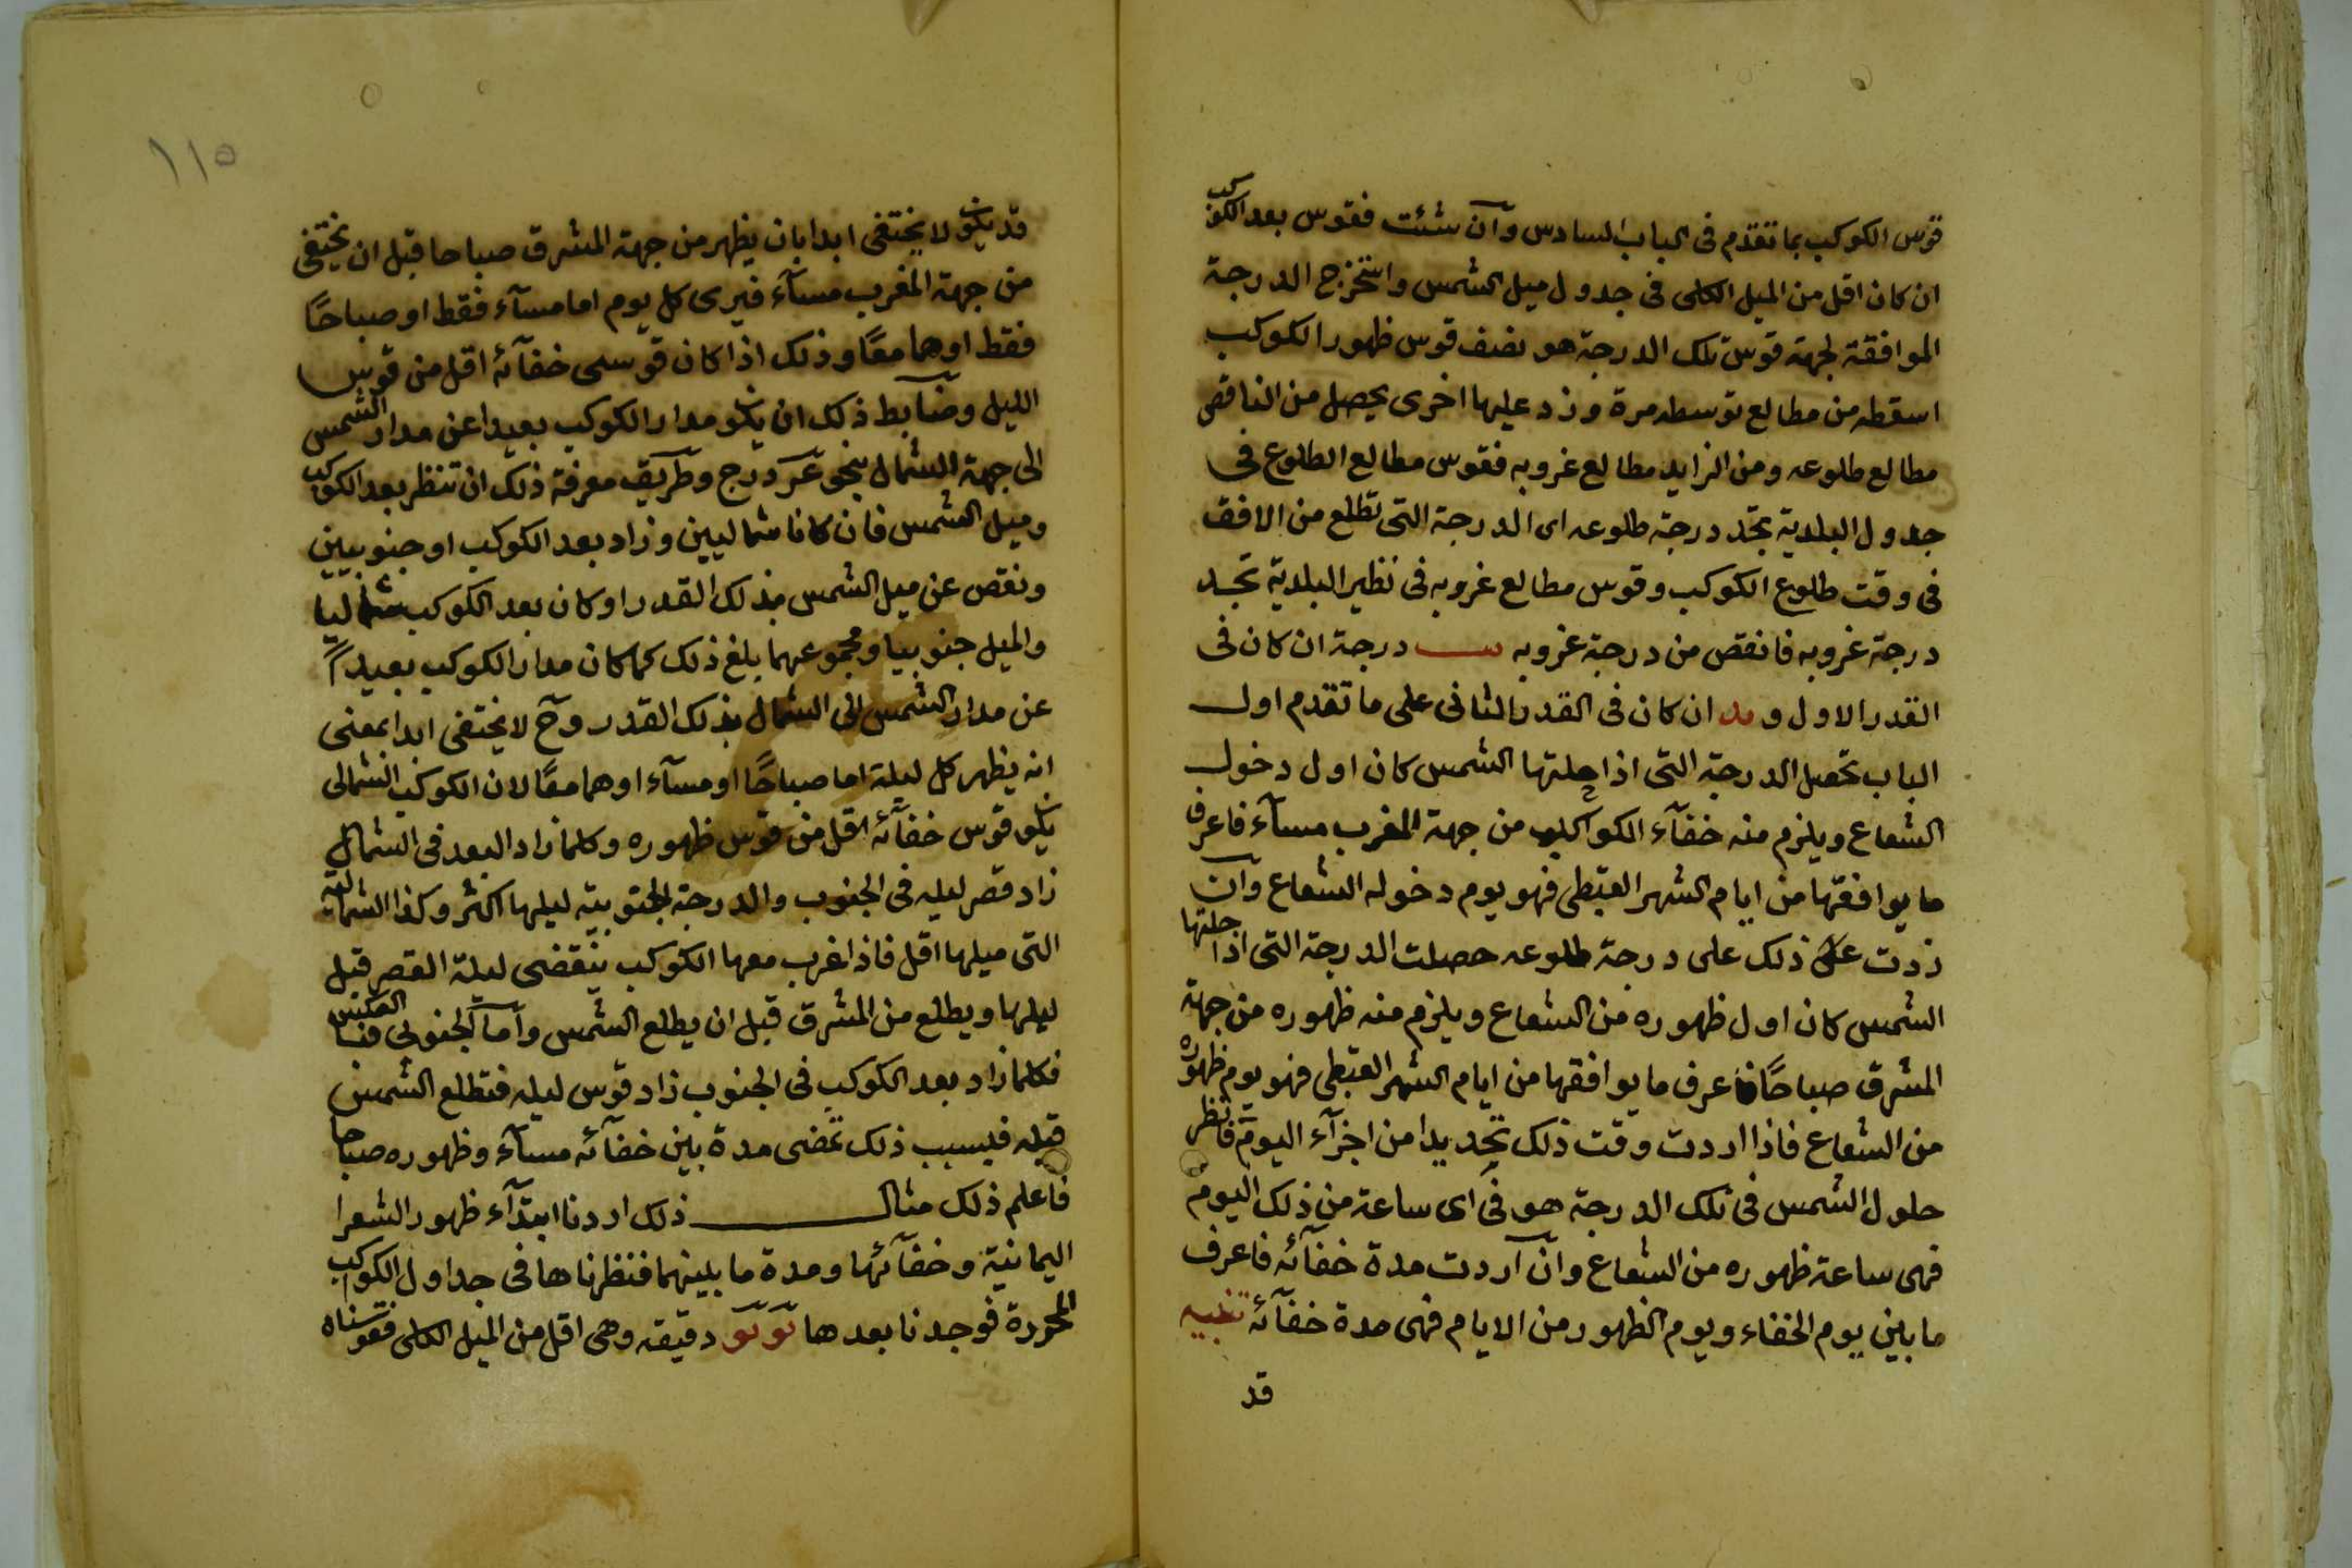 قوس الكوكب بما تقدم فى الباب السادس وان شئت فقوس بعد الكوكب
ان كان اقل من الميل الكلى فى جدول ميل الشمس واستخرج الدرجة
الموافقة لجهته قوس تلك الدرجة هو نصف قوس ظهور الكوكب
اسقطه من مطالع توسطه مرة وزد عليها اخرى يحصل من الناقص
مطالع طلوعه ومن الزايد مطالع غروبه فقوس مطالع الطلوع فى
جدول البلدية تجد درجة طلوعه اى الدرجة التى تطلع من الافق
فى وقت طلوع الكوكب وقوس مطالع غروبه فى نظير البلدية تجد
درجة غروبه فانقص من درجة غروبه درجة ان كان فى
القدر الاول و يد ان كان فى القدر الثانى على ما تقدم اول
الباب تحصل الدرجة التى اذا حلتها الشمس كان اول دخول
الشعاع ويلزم منه خفآء الكوكب من جهة المغرب مسآء فاعرف
ما يوافقها من ايام الشهر القبطى فهو يوم دخوله الشعاع وان
زدت ذلك على درجة طلوعه حصلت الدرجة التى اذا حلتها
الشمس كان اول ظهوره من الشعاع ويلزم منه ظهوره من جهة
المشرق صباحًا فاعرف ما يوافقها من ايام الشهر القبطى فهو يوم ظهوره
من الشعاع فاذا اردت وقت ذلك تحديدا من اجزآء اليوم فانظر
حلول الشمس فى تلك الدرجة هو فى اى ساعة من ذلك اليوم
فهى ساعة ظهوره من الشعاع وان اردت مدة خفآئه فاعرف
ما بين يوم الخفاء ويوم الظهور من الايام فهى مدة خفآئه تنبيه
قد
١١٥
قد يكون لا يختفى ابدا بان يظهر من جهة المشرق صباحا قبل ان يختفى
من جهة المغرب مسآء فيرى كل يوم اما مسآء فقط او صباحًا
فقط او هما معًا وذلك اذا كان قوسى خفآئه اقل من قوس
الليل وضابط ذلك ان يكون مدار الكوكب بعيدا عن مدار الشمس
الى جهة الشمال بنحو درج وطريق معرفة ذلك ان تنظر بعد الكوكب
وميل الشمس فان كانا شماليين وزاد بعد الكوكب او جنوبيين
ونقص عن ميل الشمس بذلك القدر او كان بعد الكوكب شماليا
والميل جنوبيا ومجموعهما بلغ ذلك كما كان مدار الكوكب بعيدًا
عن مدار الشمس الى الشمال بذلك القدر وح لا يختفى ابدا بمعنى
انه يظهر كل ليلة اما صباحًا او مسآء او هما معًا لان الكوكب الشمالى
يكون قوس خفآئه اقل من قوس ظهوره وكلما زاد البعد فى الشمال
زاد قصر ليله فى الجنوب والدرجة الجنوبية ليلها اكثر وكذا الشمالية
التى ميلها اقل فاذا غرب معها الكوكب ينقضى ليلة القصر قبل
ليلها ويطلع من المشرق قبل ان يطلع الشمس واما الجنوبى فبالعكس
فكلما زاد بعد الكوكب فى الجنوب زاد قوس ليله فتطلع الشمس
قبله فبسبب ذلك تمضى مدة بين خفآئه مسآء وظهوره صباحا
فاعلم ذلك مثال ذلك اردنا ابتدآء ظهور الشعرا
اليمانية وخفآئها ومدة ما بينهما فنظرناها فى جداول الكواكب
المحررة فوجدنا بعدها دقيقه وهى اقل من الميل الكلى فقوسناه